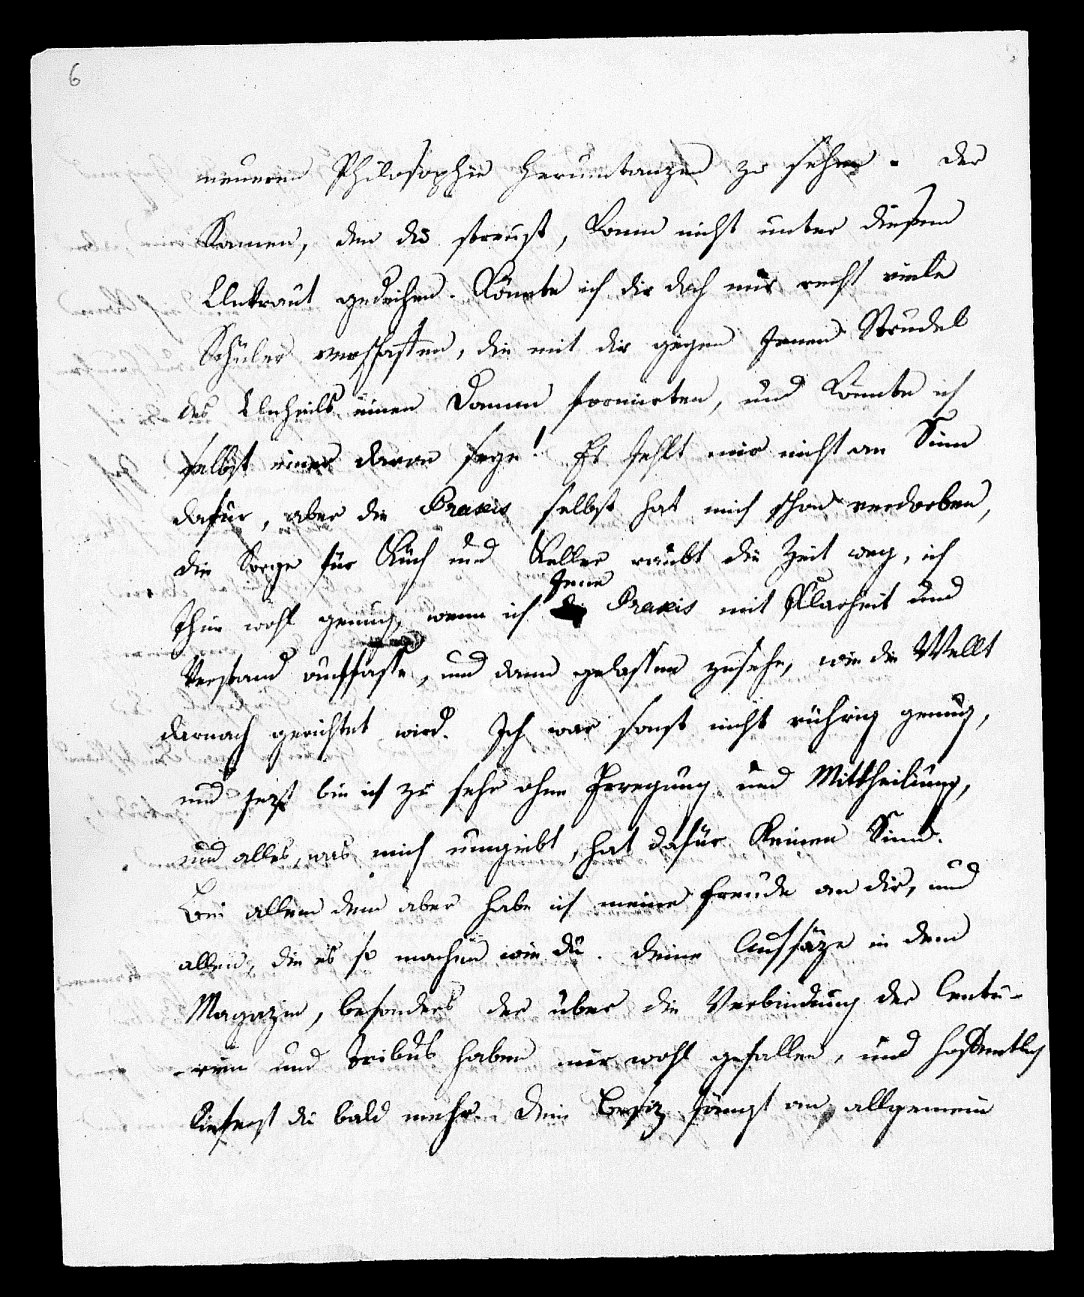 6
neueren Philosophie herumtanzen zu sehen. Der
Samen, den du streust, kann nicht unter diesem
Unkraut gedeihen. Könnte ich dir doch nur recht viele
Schüler verschaffen, die mit dir gegen jenen Strudel
des Unheils einen Damm formirten, und könnte ich
selbst einer davon seyn! Es fehlt mir nicht an Sinn
dafür, aber die Praxis selbst hat mich schon verdorben,
die Sorge für Küch und Keller raubt die Zeit weg, ich
Jene
thue wohl genug, wenn ich Praxis mit Klarheit und
Verstand auffasse, und dann gelassen zusehe, wie die Wellt
darnach gerichtet wird. Ich war sonst nicht rührig genug,
und jezt bin ich zu sehr ohne Erregung und Mittheilung,
und alles, was mich umgiebt, hat dafür keinen Sinn.
Bei allem dem aber habe ich meine Freude an dir, und
allen, die es so machen wie du. Deine Aufsäze in dem
Magazin, besonders der über die Verbindung der Centu-
rien und Tribus haben mir wohl gefallen, und hoffentlich
lieferst du bald mehr. Dein Besiz fängt an, allgemein